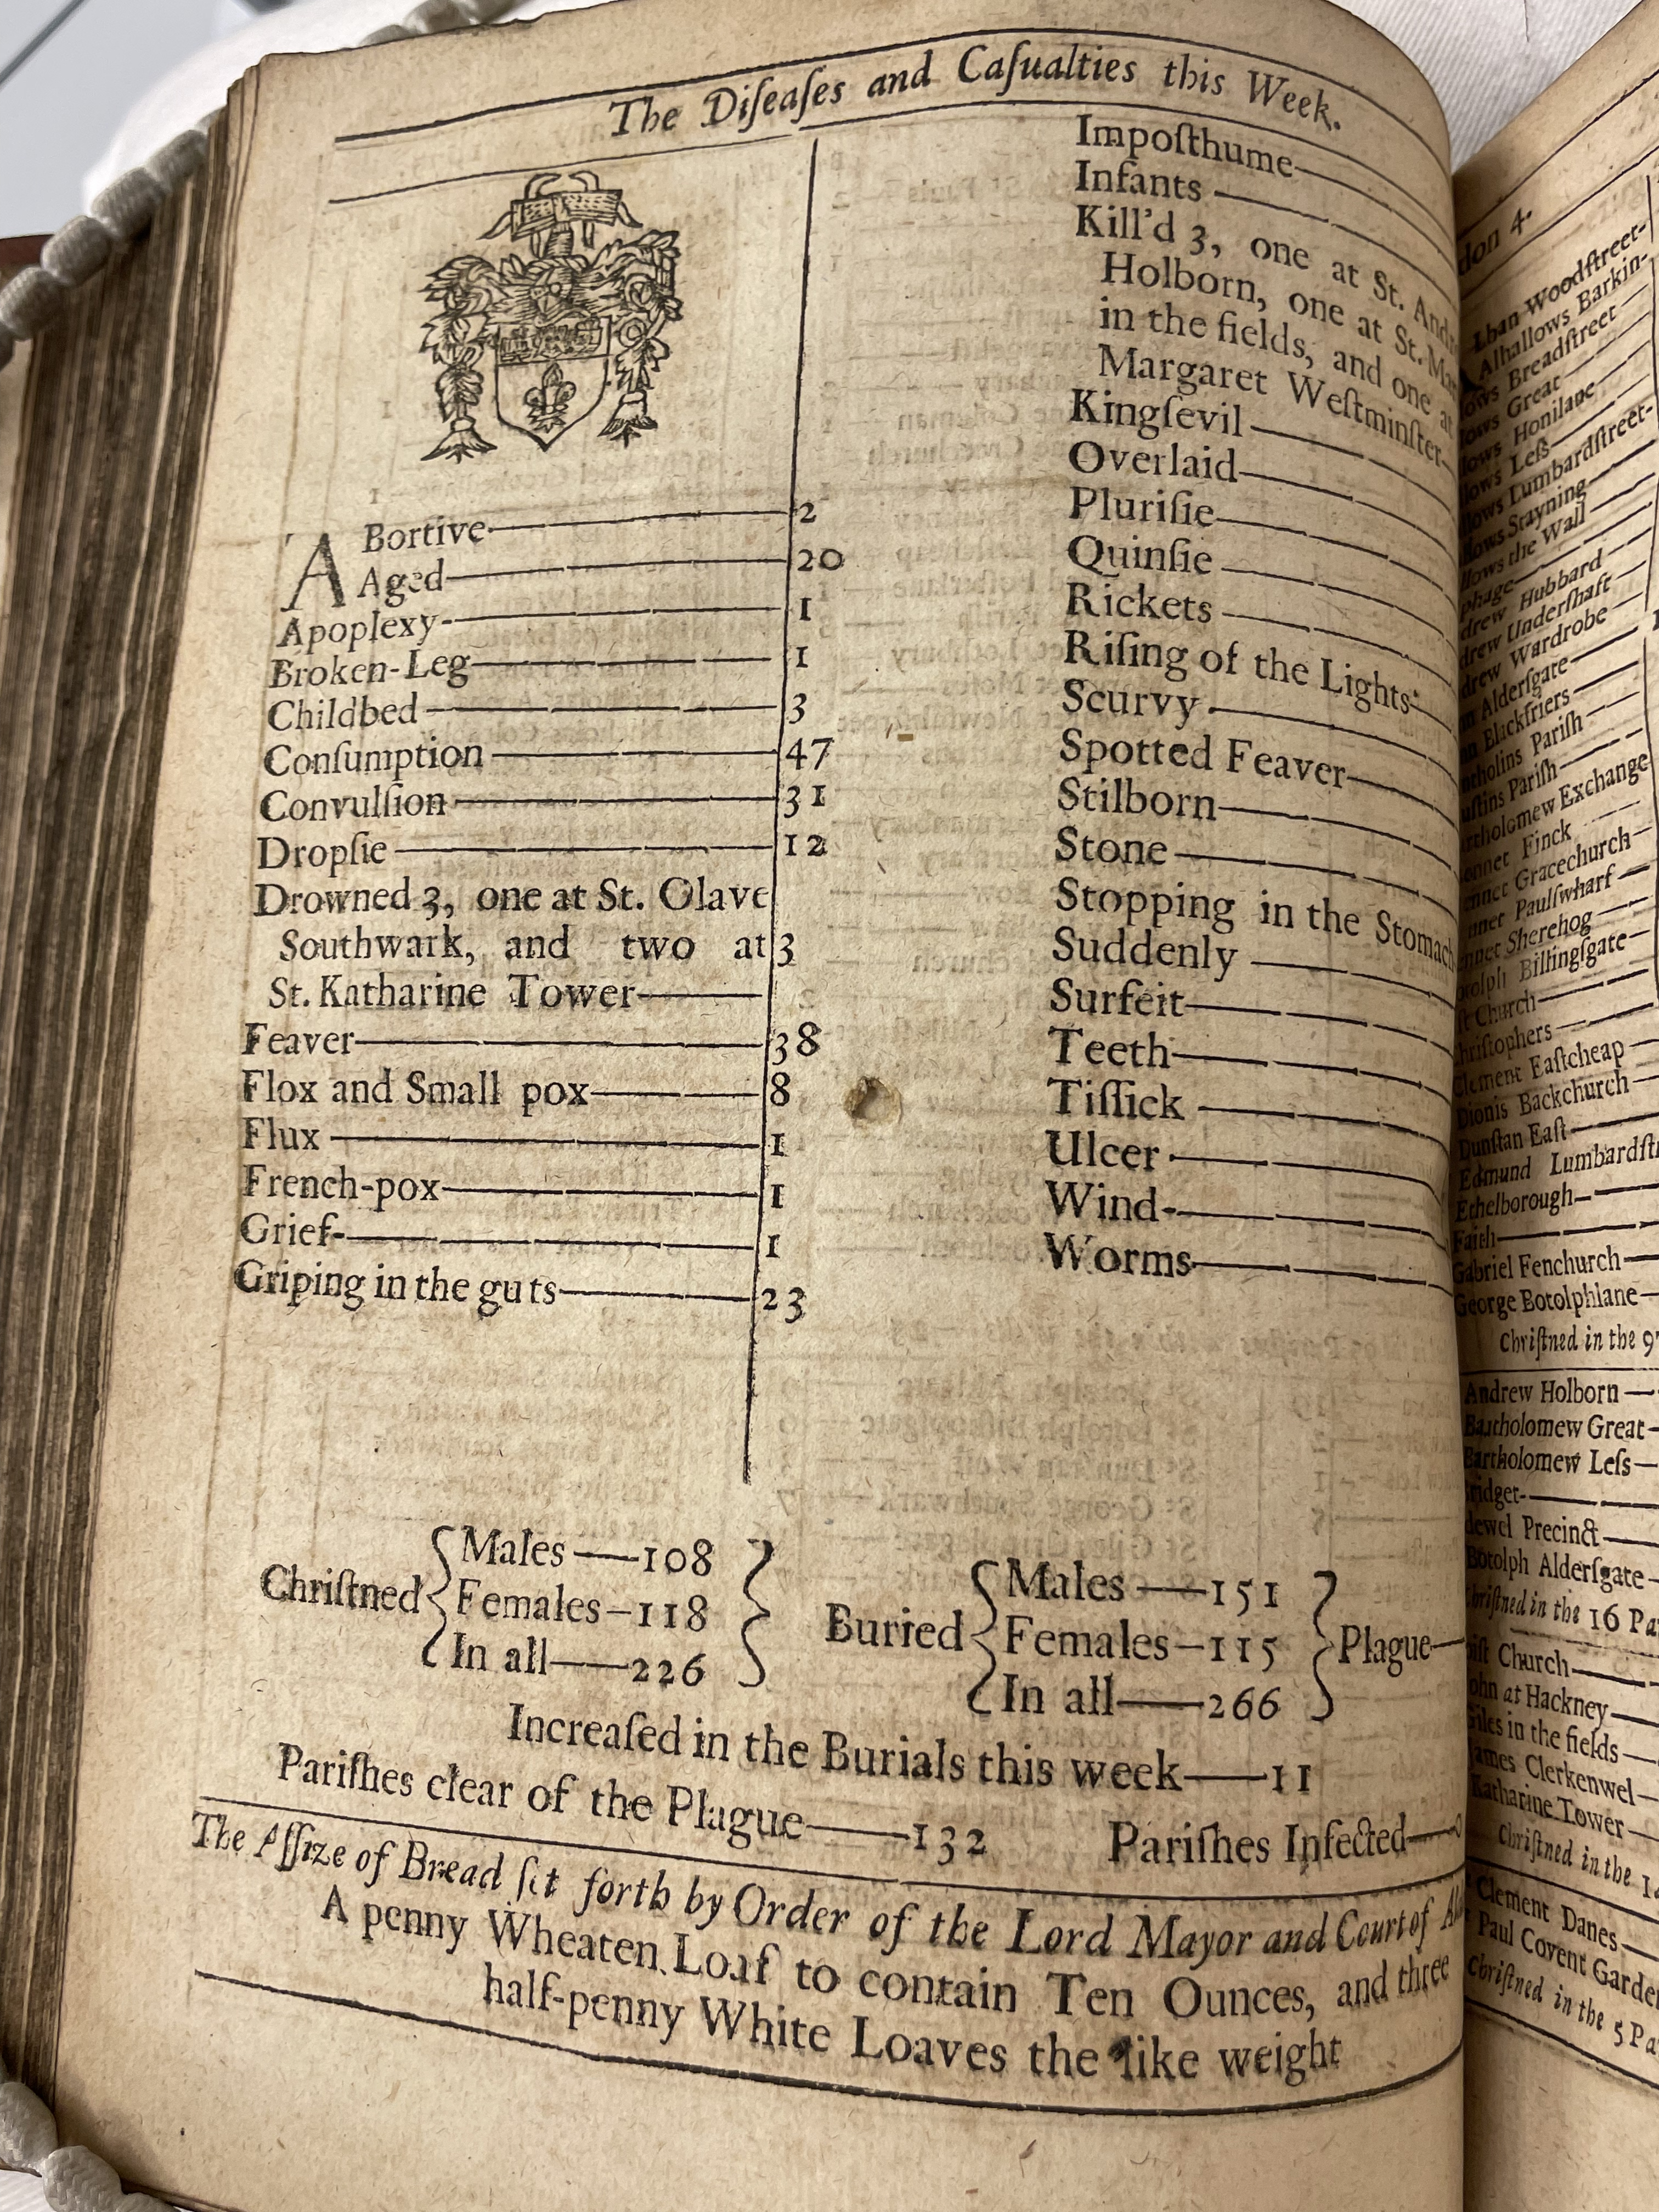 The Diſeaſes and Caſualties this Week.
ABortive 2
Aged 20
Apoplexy 1
Broken-Leg 1
Childbed 3
Conſumption 47
Convulſion 31
Dropſie 12
Drowned 3, one at St. Olave
Southwark, and two at 3
St. Katharine Tower
Feaver 38
Flox and Small pox 8
Flux 1
French-pox 1
Grief 1
Griping in the guts 23
Impoſthume
Infants
Kill'd 3, one at St.
Holborn, one at St.
in the fields, and one at
Margaret Weſtminſter
Kingſevil
Overlaid
Pluriſie
Quinſie
Rickets
Riſing of the Lights
Scurvy
Spotted Feaver
Stilborn
Stone
Stopping in the Stomach
Suddenly
Surfeit
Teeth
Tiſſick
Ulcer
Wind
Worms
Chriſtned
Males 108
Females 118
In all 226
Buried
Males 151
Females 115
In all 266
Plague
Increaſed in the Burials this week 11
Pariſhes clear of the Plague 132 Pariſhes Infected
The Aſſize of Bread ſet forth by Order of the Lord Mayor and Court of
A penny Wheaten Loaf to contain Ten Ounces, and three
half-penny White Loaves the like weight
4.
Woodſtreet
Alhallows Barkin
Breadſtreet
Great
Honilane
Leſs
Lumbardſtreet
Stayning
the Wall
Hubbard
Underſhaft
Wardrobe
Alderſgate
Blackfriers
Pariſh
Pariſh
Exchange
Finck
Gracechurch
Paulſwharf
Sherehog
Billingſgate
Church
Clement Eaſtcheap
Dionis Backchurch
Dunſtan Eaſt
Edmund
Ethelborough
Faith
Gabriel Fenchurch
George Botolphlane
Chriſtned in the
Andrew Holborn
Bartholomew Great
Bartholomew Leſs
Precinct
Botolph Alderſgate
Chriſtned in the 16
Church
at Hackney
Giles in the fields
James Clerkenwel
Katharine Tower
Chriſtned in the
Clement Danes
Paul Covent
Chriſtned in the 5